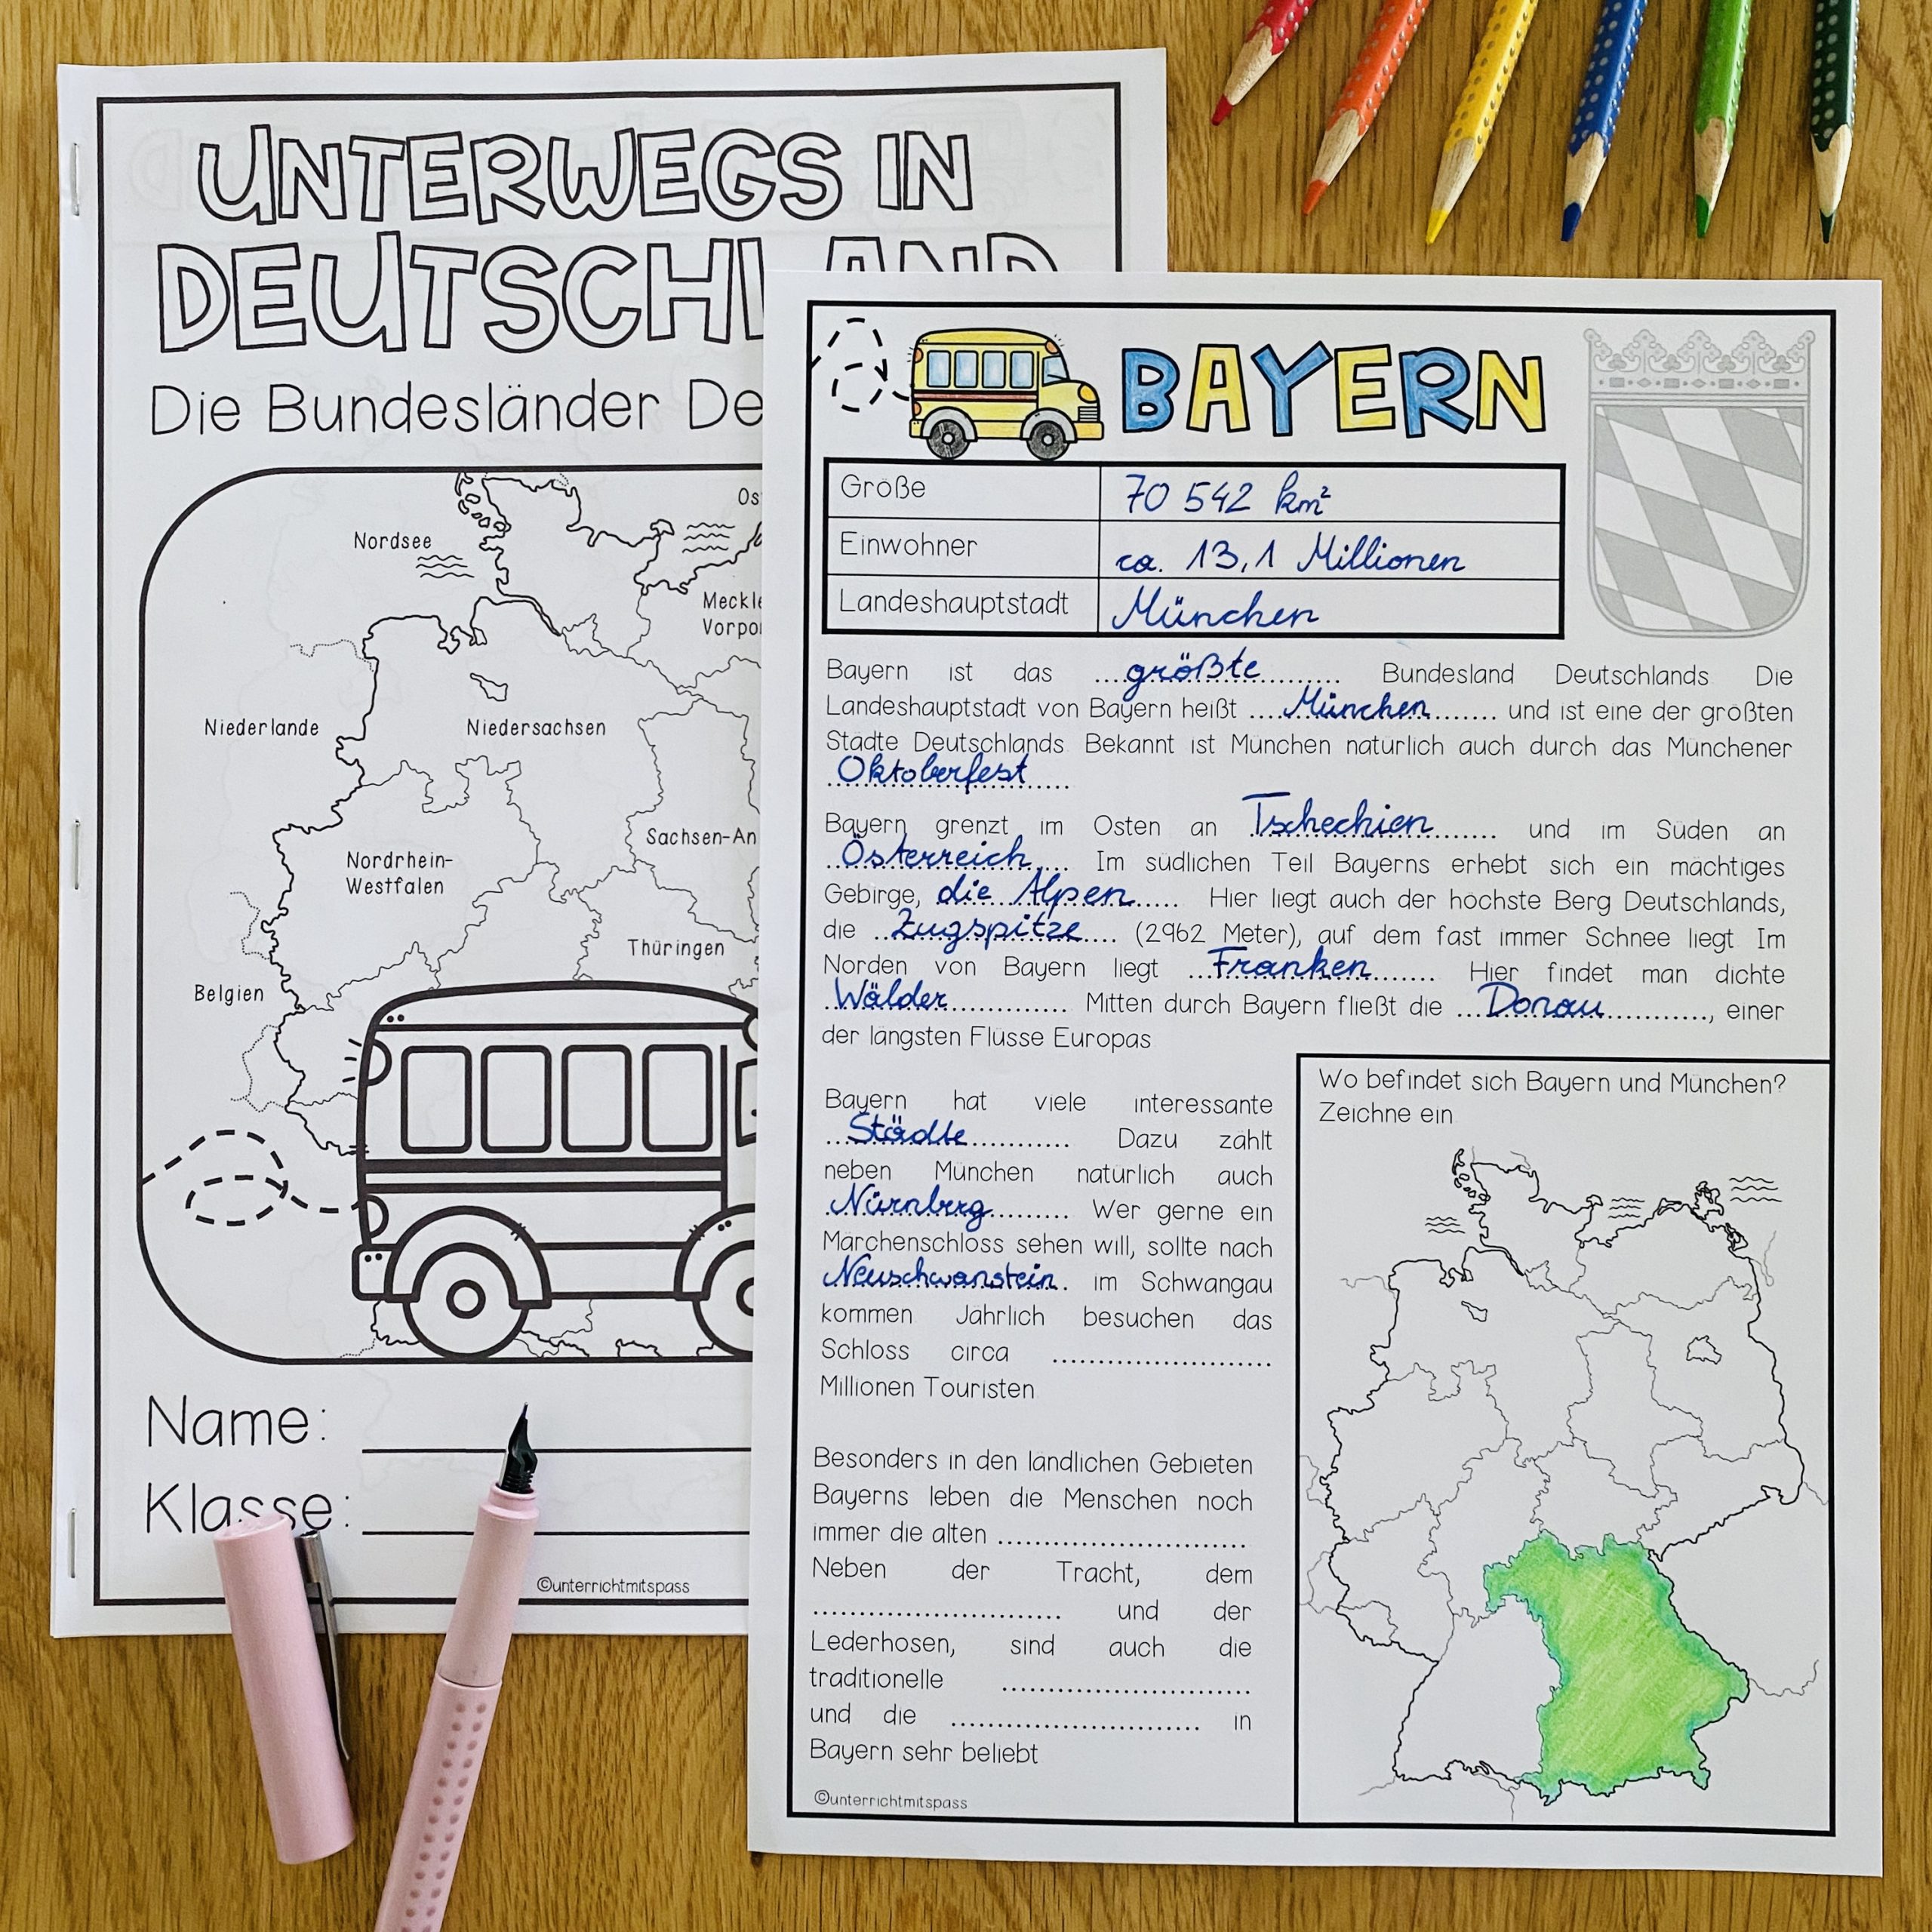 UNTERWEGS IN
DEUTSCHLAND
Die Bundesländer De
Nordsee
Os
Meckle
Vorpo
Niederlande
Niedersachsen
Sachsen-An
Nordrhein-
Westfalen
Thüringen
Belgien
Name:
Klasse:
©unterrichtmitspass
BAYERN
Größe 70 542 km²
Einwohner ca. 13,1 Millionen
Landeshauptstadt München
Bayern ist das größte Bundesland Deutschlands. Die
Landeshauptstadt von Bayern heißt München und ist eine der größten
Städte Deutschlands. Bekannt ist München natürlich auch durch das Münchener
Oktoberfest
Bayern grenzt im Osten an Tschechien und im Süden an
Österreich. Im südlichen Teil Bayerns erhebt sich ein mächtiges
Gebirge, die Alpen. Hier liegt auch der höchste Berg Deutschlands,
die Zugspitze (2962 Meter), auf dem fast immer Schnee liegt. Im
Norden von Bayern liegt Franken. Hier findet man dichte
Wälder. Mitten durch Bayern fließt die Donau, einer
der längsten Flüsse Europas.
Bayern hat viele interessante
Städte. Dazu zählt
neben München natürlich auch
Nürnberg. Wer gerne ein
Märchenschloss sehen will, sollte nach
Neuschwanstein im Schwangau
kommen. Jährlich besuchen das
Schloss circa ........................
Millionen Touristen.
Besonders in den ländlichen Gebieten
Bayerns leben die Menschen noch
immer die alten ...........................
Neben der Tracht, dem
........................... und der
Lederhosen, sind auch die
traditionelle ...........................
und die ........................... in
Bayern sehr beliebt.
©unterrichtmitspass
Wo befindet sich Bayern und München?
Zeichne ein.